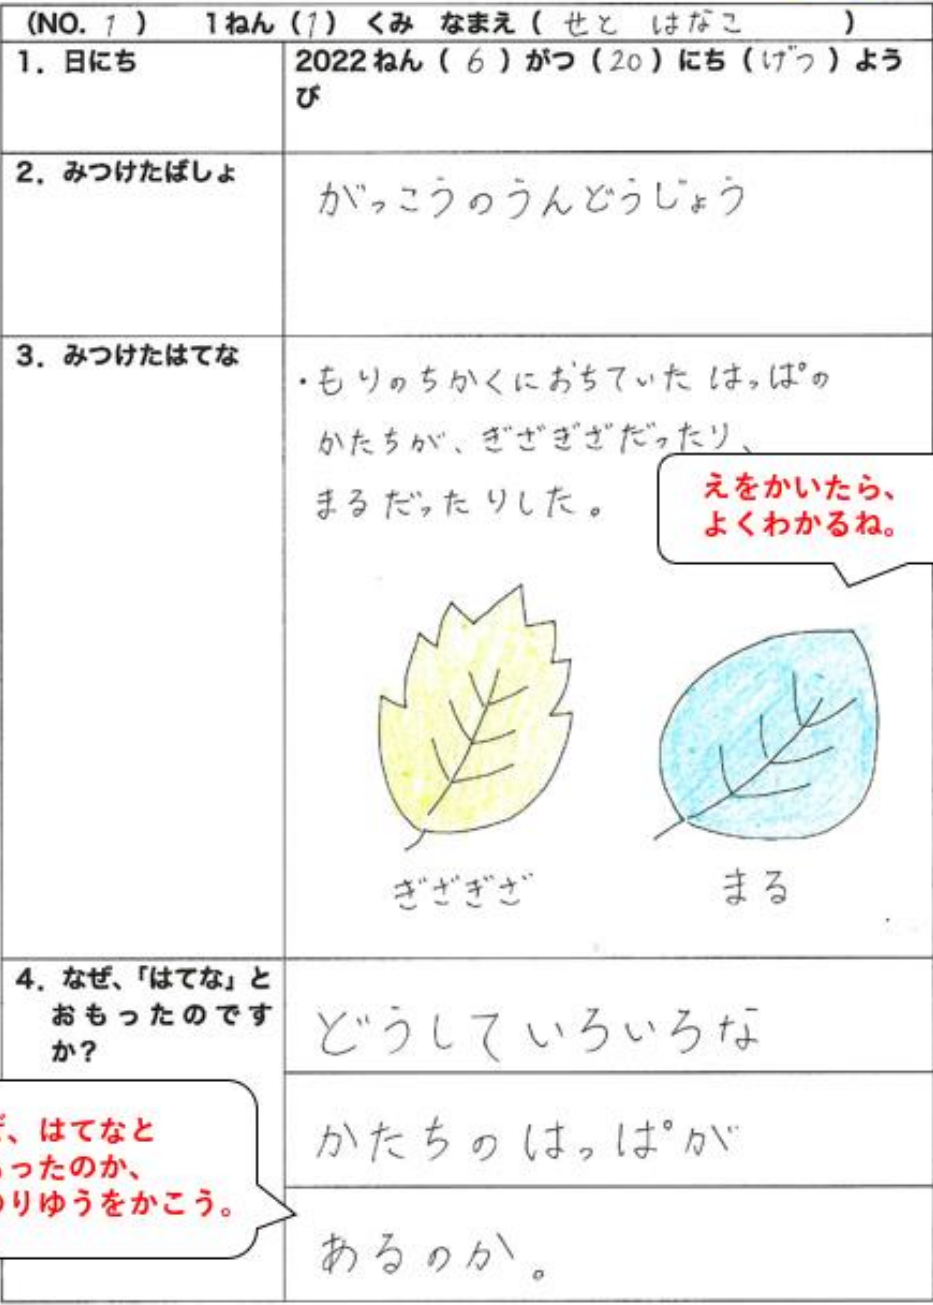 (NO. 1 ) 1ねん (1) くみ なまえ ( せと はなこ )
1. 日にち
2022ねん ( 6 ) がつ ( 20 ) にち ( げつ ) よう
び
2. みつけたばしょ
がっこうのうんどうじょう
3. みつけたはてな
・もりのちかくにおちていた はっぱの
かたちが、ぎざぎざだったり、
まるだったりした。
えをかいたら、
よくわかるね。
ぎざぎざ
まる
4. なぜ、「はてな」と
おもったのです
か?
どうしていろいろな
かたちのはっぱが
あるのか。
、はてなと
ったのか、
りゆうをかこう。